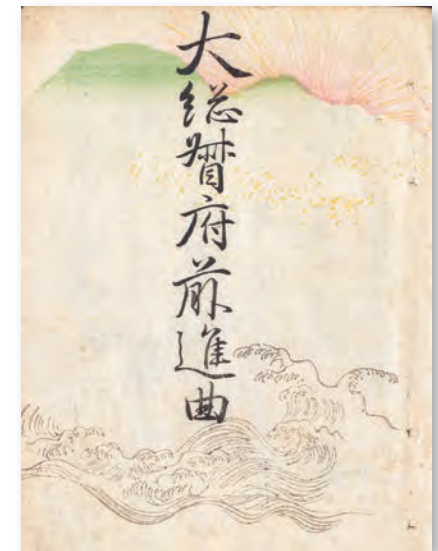 大総督府前進曲